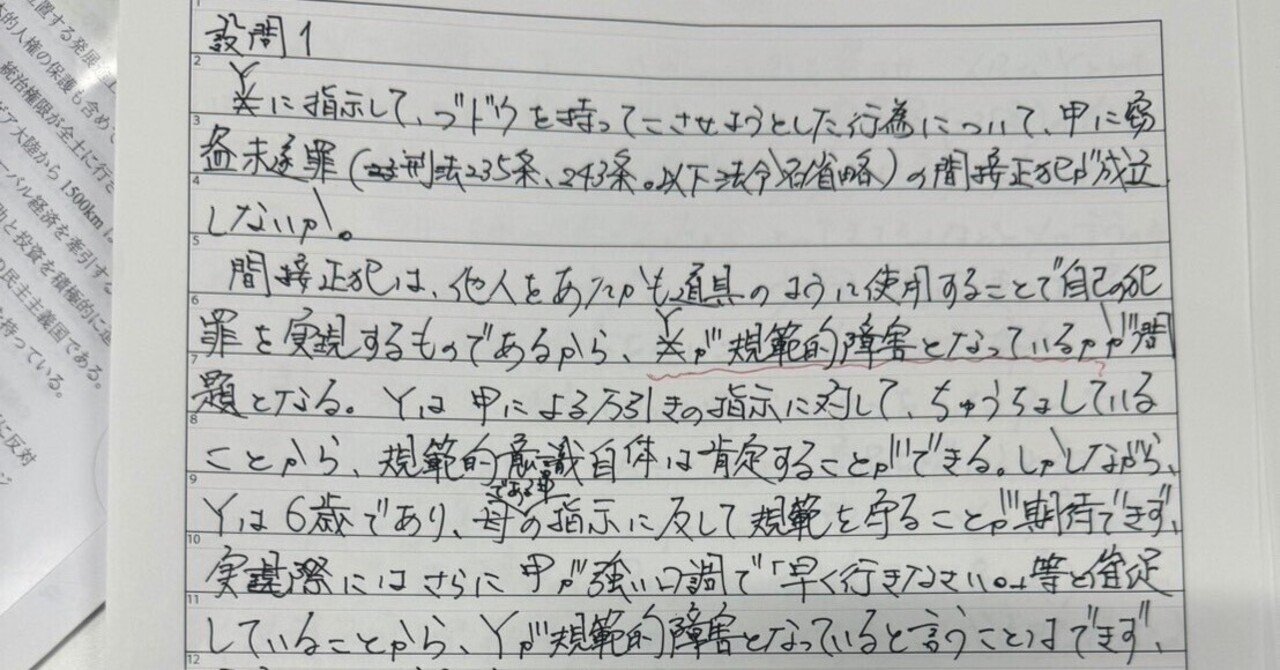 置する発展
本的人権の保護も含めて
統治権限が全土に行き
ア大陸から1500km
ーバル経済を牽引する
助と投資を積極的に
の民主主義国である。
持っている。
に反対
1
設問1
2
Y
に指示して、ブドウを持ってこさせようとした行為について、甲に窃
3
盗未遂罪(刑法235条、243条。以下法令名省略)の間接正犯が成立
4
しないか。
5
間接正犯は、他人をあたかも道具のように使用することで自己の犯
6
Y
罪を実現するものであるから、が規範的障害となっているかが問
7
題となる。Yは甲による万引きの指示に対して、ちゅうちょしている
8
ことから、規範的意識自体は肯定することができる。しかしながら、
9
である甲
Yは6歳であり、母の指示に反して規範を守ることが期待できず、
10
実際にはさらに甲が強い口調で「早く行きなさい。」等と催促
11
していることから、Yが規範的障害となっていると言うことはできず、
12